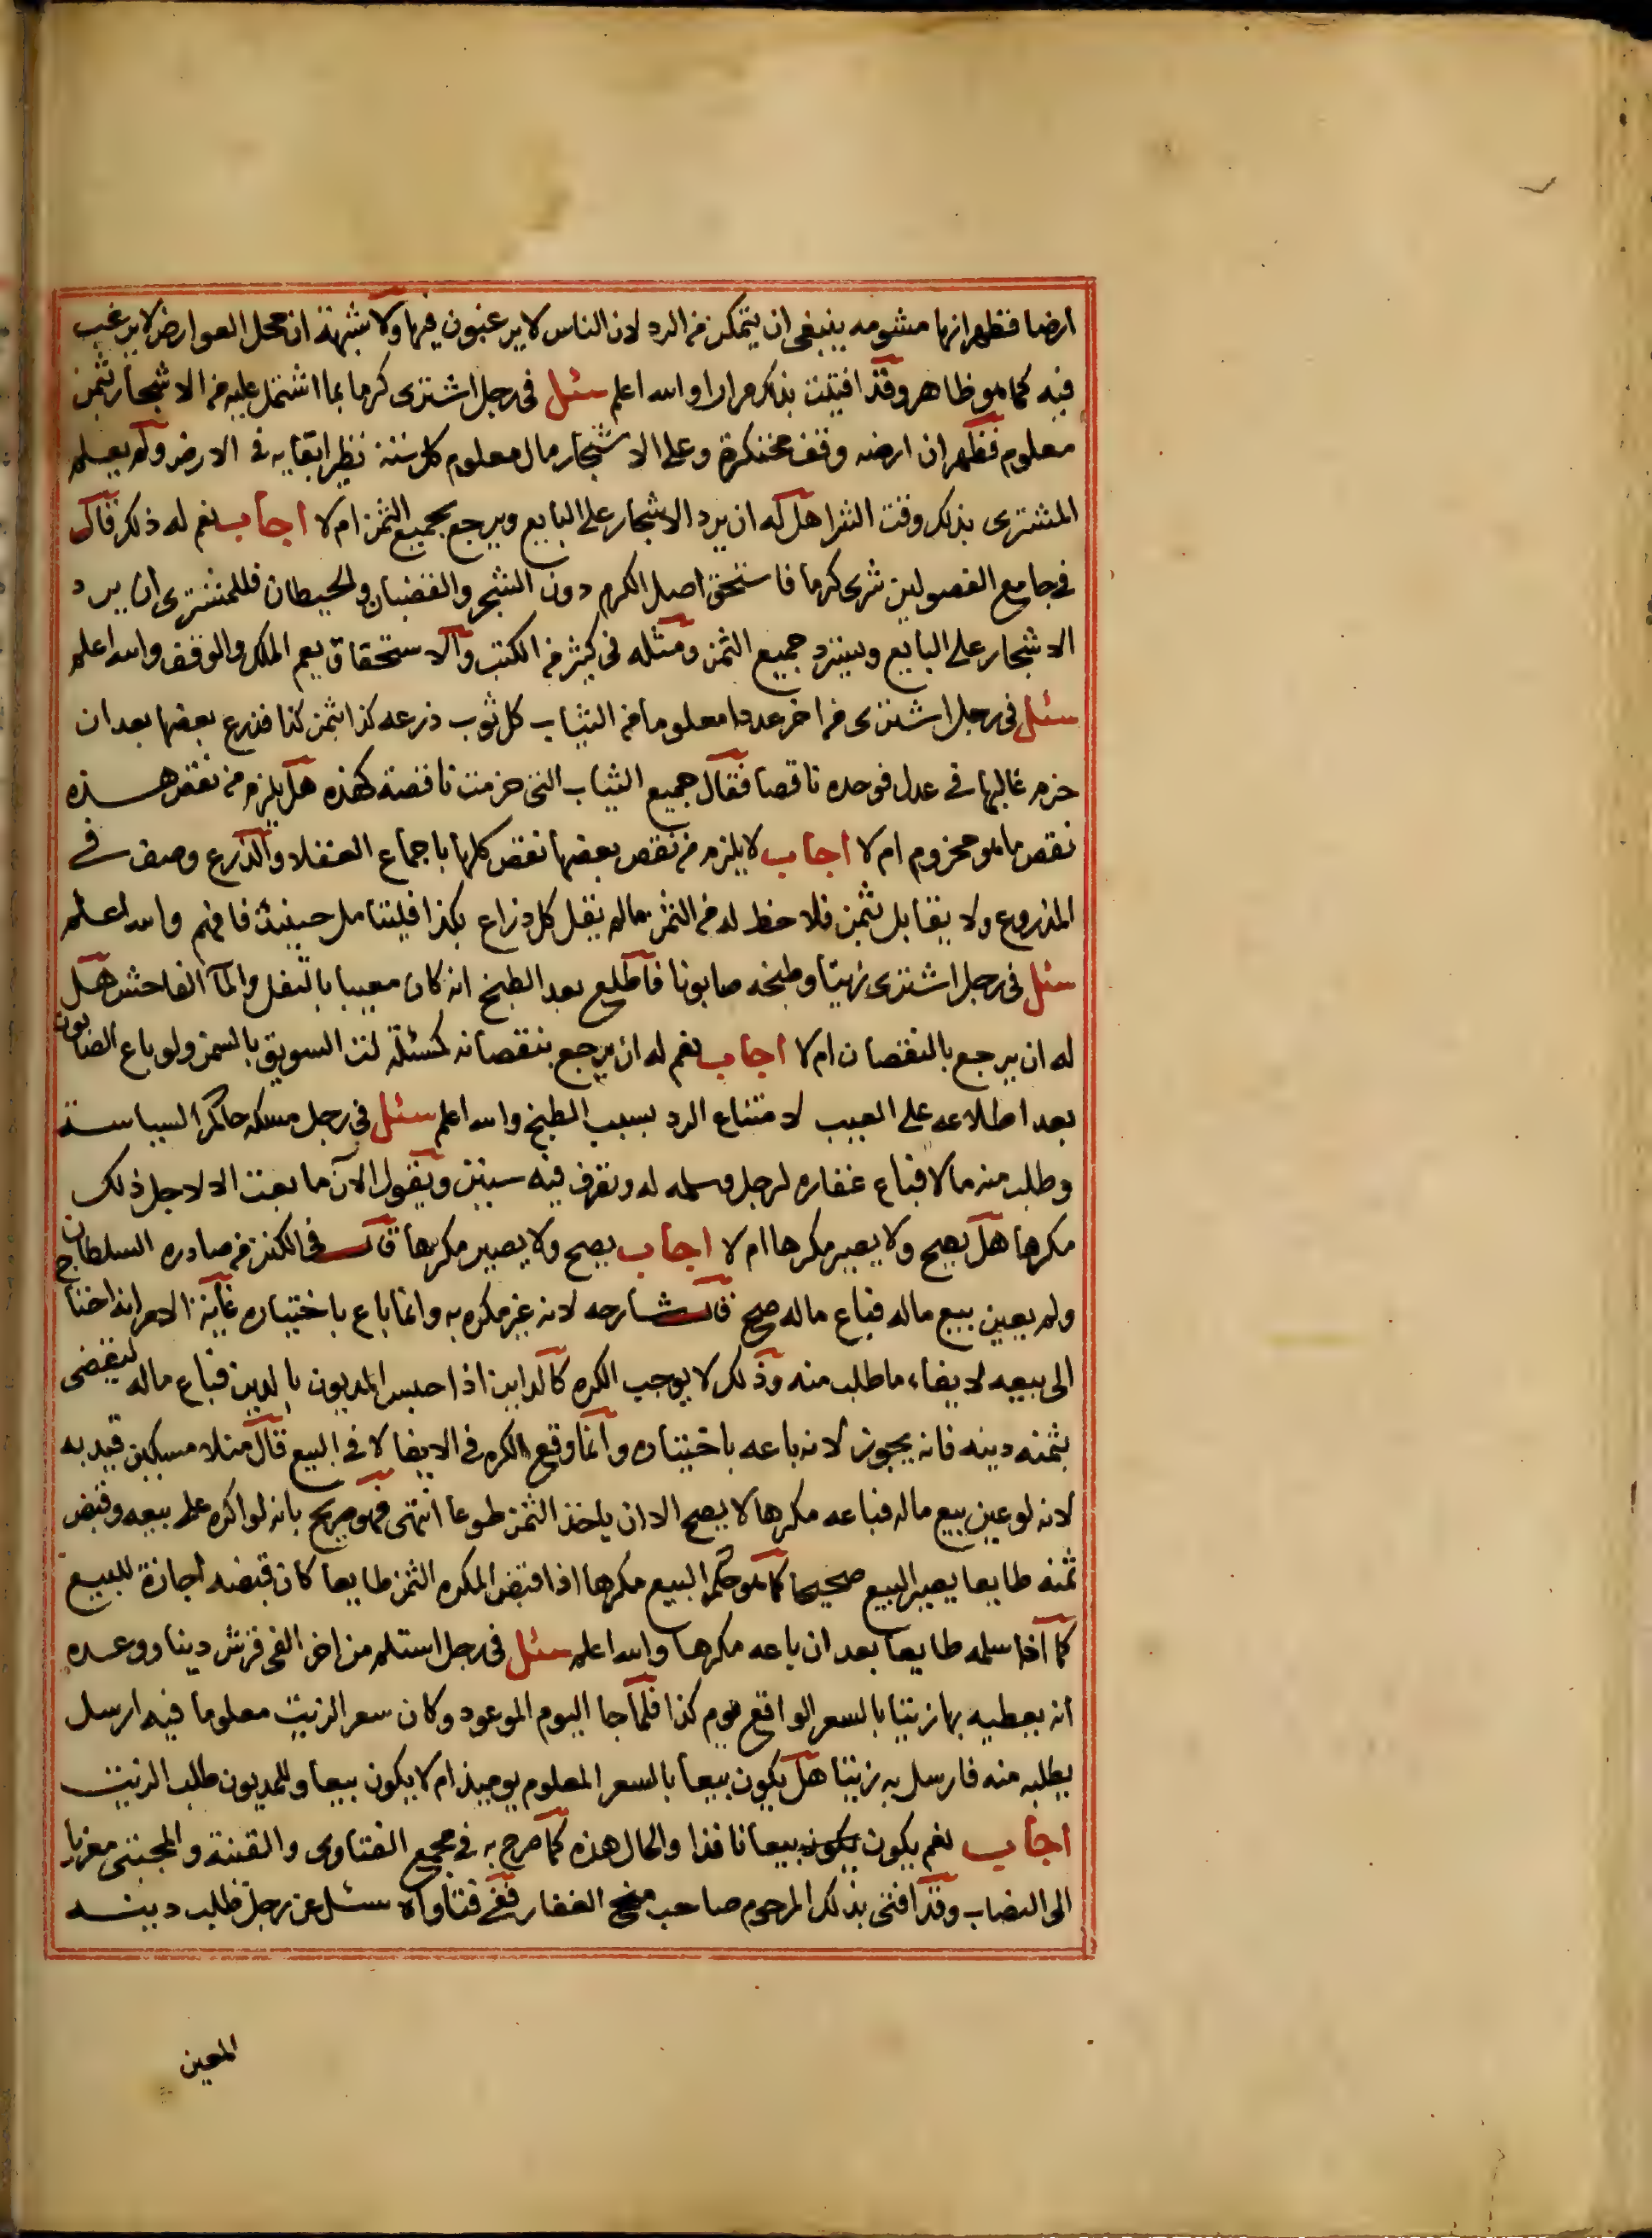 ارضا فظهر انها مشومه ينبغى ان يتمكن من الرد لان الناس لا يرغبون فيها ولا شبهة ان محل العوارض لا يرغب
فيه كما هو ظاهر وقد افتيت بذلك مرارا والله اعلم سئل فى رجل اشترى كرما بما اشتمل عليه من الاشجار بثمن
معلوم فظهر ان ارضه وقف محتكرة وعلى الاشجار مال معلوم كل سنة نظير ابقايه فى الارض ولم يعلم
المشترى بذلك وقت الشرا هل له ان يرد الاشجار على البايع ويرجع بجميع الثمن ام لا اجاب نعم له ذلك قال
فى جامع الفصولين شرى كرما فاستحق اصل الكرم دون الشجر والقضبان والحيطان فللمشترى ان يرد
الاشجار على البايع ويسترد جميع الثمن ومثله فى كثير من الكتب والاستحقاق يعم الملك والوقف والله اعلم
سئل فى رجل اشترى من اخر عددا معلوما من الثياب كل ثوب ذرعه كذا بثمن كذا فذرع بعضها بعد ان
حزم غالبها فى عدل فوجده ناقصا فقال جميع الثياب التى حزمت ناقصة كهذه هل يلزم من نقص هذه
نقص ما هو محزوم ام لا اجاب لا يلزم من نقص بعضها نقص كلها باجماع العقلاء والذرع وصف فى
المذروع ولا يقابل بثمن فلا حظ له من الثمن ما لم يقل كل ذراع بكذا فليتامل حينيذ فافهم والله اعلم
سئل فى رجل اشترى زيتا وطبخه صابونا فاطلع بعد الطبخ انه كان معيبا بالثفل والمآ الفاحش هل
له ان يرجع بالنقصان ام لا اجاب نعم له ان يرجع بنقصانه كمسئلة لت السويق بالسمن ولو باع الصابون
بعد اطلاعه على العيب لامتناع الرد بسبب الطبخ والله اعلم سئل فى رجل مسكه حاكم السياسة
وطلب منه مالا فباع عقاره لرجل وسلمه له وتصرف فيه سنين ويقول الآن ما بعت الا لاجل ذلك
مكرها هل يصح ولا يصير مكرها ام لا اجاب يصح ولا يصير مكرها قال فى الكنز من صادره السلطان
ولم يعين بيع ماله فباع ماله صح قال شارحه لانه غير مكره به وانما باع باختياره غاية الامر انه احتاج
الى بيعه لايفاء ما طلب منه وذلك لا يوجب الكره كالداين اذا حبس المديون بالدين فباع ماله ليقضى
بثمنه دينه فانه يجوز لانه باعه باختياره وانما وقع الكره فى الايفا لا فى البيع قال منلا مسكين قيد به
لانه لو عين بيع ماله فباعه مكرها لا يصح الا ان ياخذ الثمن طوعا انتهى فهو صريح بانه لو اكره على بيعه وقبض
ثمنه طايعا يصير البيع صحيحا كما هو حكم البيع مكرها اذا قبض المكره الثمن طايعا كان قبضه اجازة للبيع
كما اذا سلمه طايعا بعد ان باعه مكرها والله اعلم سئل فى رجل استلم من اخر الفى قرش دينا ووعده
انه يعطيه بها زيتا بالسعر الواقع يوم كذا فلما جا اليوم الموعود وكان سعر الزيت معلوما فيه ارسل
يطلبه منه فارسل به زيتا هل يكون بيعا بالسعر المعلوم يوميذ ام لا يكون بيعا وللمديون طلب الزيت
اجاب نعم يكون يكون بيعا نافذا والحال هذه كما صرح به فى مجمع الفتاوى والقنية والمجتبى معزيا
الى النصاب وقد افتى بذلك المرحوم صاحب منح الغفار ففى فتاواه سئل عن رجل طلب دينه
المعين